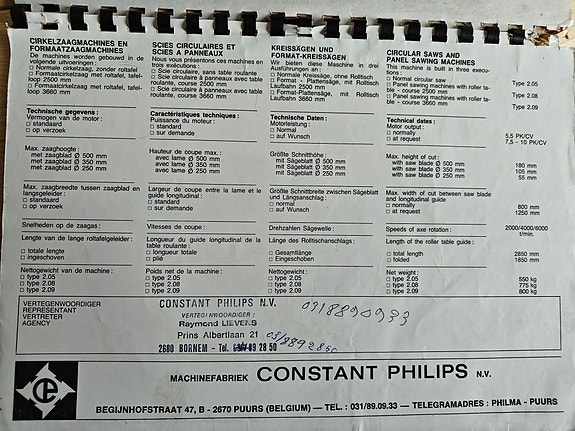 CIRKELZAAGMACHINES EN
FORMAATZAAGMACHINES
De machines worden gebouwd in de
volgende uitvoeringen :
□ Normale cirkelzaag, zonder roltafel
□ Formaatcirkelzaag met roltafel, tafel-
loop 2500 mm
□ Formaatcirkelzaag met roltafel, tafel-
loop 3660 mm
Technische gegevens :
Vermogen van de motor :
□ standaard
□ op verzoek
Max. zaaghoogte :
met zaagblad Ø 500 mm
met zaagblad Ø 350 mm
met zaagblad Ø 250 mm
Max. zaagbreedte tussen zaagblad en
langsgeleider :
□ standaard
□ op verzoek
Snelheden op de zaagas :
Lengte van de lange roltafelgeleider :
□ totale lengte
□ ingeschoven
Nettogewicht van de machine :
□ type 2.05
□ type 2.08
□ type 2.09
SCIES CIRCULAIRES ET
SCIES A PANNEAUX
Nous vous présentons ces machines en
trois exécutions :
□ Scie circulaire, sans table roulante
□ Scie circulaire à panneaux avec table
roulante, course 2500 mm
□ Scie circulaire à panneaux avec table
roulante, course 3660 mm
Caractéristiques techniques :
Puissance du moteur :
□ standard
□ sur demande
Hauteur de coupe max. :
avec lame Ø 500 mm
avec lame Ø 350 mm
avec lame Ø 250 mm
Largeur de coupe entre la lame et le
guide longitudinal :
□ standard
□ sur demande
Vitesses de coupe :
Longueur du guide longitudinal de la
table roulante :
□ longueur totale
□ plié
Poids net de la machine :
□ type 2.05
□ type 2.08
□ type 2.09
KREISSÄGEN UND
FORMAT-KREISSÄGEN
Wir bieten diese Maschine in drei
Ausführungen an :
□ Normale Kreissäge, ohne Rolltisch
□ Format - Plattensäge, mit Rolltisch
Laufbahn 2500 mm
□ Format-Plattensäge, mit Rolltisch
Laufbahn 3660 mm
Technische Daten :
Motorleistung :
□ Normal
□ auf Wunsch
Größte Schnitthöhe :
mit Sägeblatt Ø 500 mm
mit Sägeblatt Ø 350 mm
mit Sägeblatt Ø 250 mm
Größte Schnittbreite zwischen Sägeblatt
und Längsanschlag :
□ normal
□ auf Wunsch
Drehzahlen Sägewelle :
Länge des Rolltischanschlags :
□ Gesamtlänge
□ Eingeschoben
Nettogewicht :
□ type 2.05
□ type 2.08
□ type 2.09
CIRCULAR SAWS AND
PANEL SAWING MACHINES
This machine is built in three execu-
tions :
□ Normal circular saw Type 2.05
□ Panel sawing machines with roller ta-
ble - course 2500 mm Type 2.08
□ Panel sawing machines with roller ta-
ble - course 3660 mm Type 2.09
Technical dates :
Motor output :
□ normally 5,5 PK/CV
□ at request 7,5 - 10 PK/CV
Max. height of cut :
with saw blade Ø 500 mm 180 mm
with saw blade Ø 350 mm 105 mm
with saw blade Ø 250 mm 55 mm
Max. width of cut between saw blade
and longitudinal guide
□ normally 800 mm
□ at request 1250 mm
Speeds of axe rotation : 2000/4000/6000
t/min.
Length of the roller table guide :
□ total length 2850 mm
□ folded 1850 mm
Net weight :
□ type 2.05 550 kg
□ type 2.08 775 kg
□ type 2.09 800 kg
VERTEGENWOORDIGER
REPRESENTANT
VERTRETER
AGENCY
CONSTANT PHILIPS N.V.
VERTEGENWOORDIGER :
Raymond LIEVENS
Prins Albertlaan 21
2680 BORNEM - Tel. 09 28 50
031 8890933
03/889 2850
MACHINEFABRIEK CONSTANT PHILIPS N.V.
BEGIJNHOFSTRAAT 47, B - 2670 PUURS (BELGIUM) — TEL. : 031/89.09.33 — TELEGRAMADRES : PHILMA - PUURS